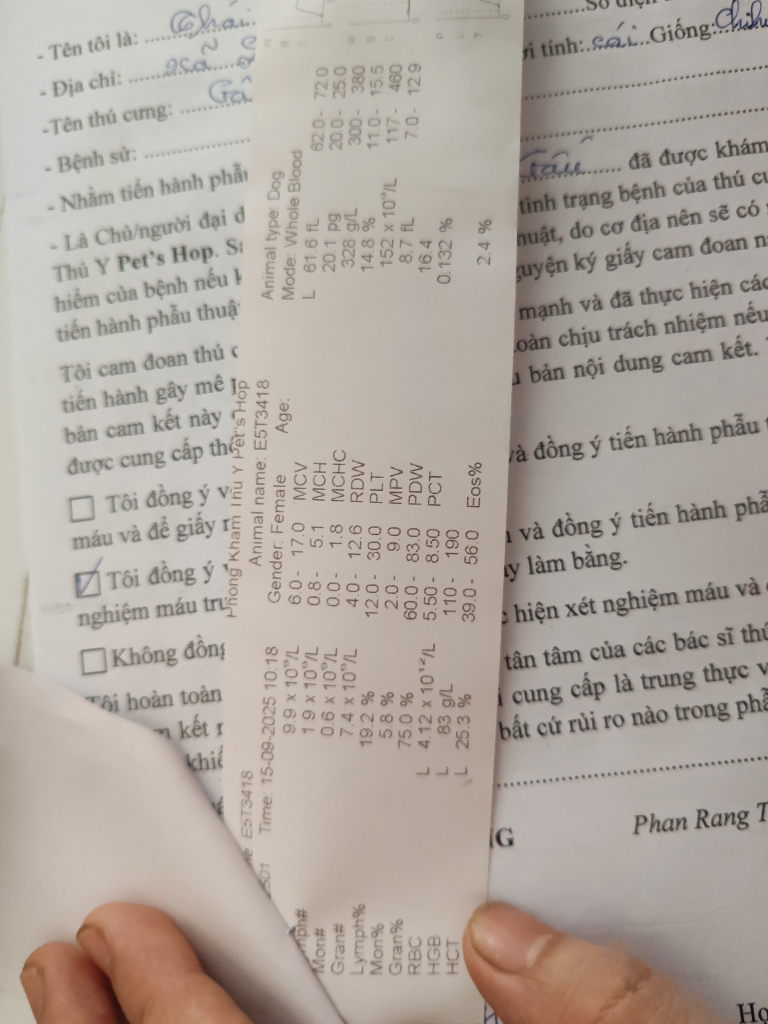 - Tên tôi là:
- Địa chỉ:
-Tên thú cưng:
- Bệnh sử:
- Nhằm tiến hành phẫu
- Là Chủ/người đại d
Thú Y Pet's Hop. Sa
hiểm của bệnh nếu k
tiến hành phẫu thuậ
Tôi cam đoan thú c
tiến hành gây mê p
bản cam kết này
được cung cấp thô
Tôi đồng ý v
máu và để giấy n
Tôi đồng ý
nghiệm máu trư
Không đồng
Tôi hoàn toàn
kết
khiế
Phong Kham Thu Y Pet's Hop
E5T3418 Animal name: E5T3418
Time: 15-09-2025 10:18 Gender: Female Age: Animal type: Dog
Mode: Whole Blood
9.9 x 10⁹/L 6.0 - 17.0 MCV L 61.6 fL 62.0 - 72.0
mph# 1.9 x 10⁹/L 0.8 - 5.1 MCH 20.1 pg 20.0 - 25.0
Mon# 0.6 x 10⁹/L 0.0 - 1.8 MCHC 328 g/L 300 - 380
Gran# 7.4 x 10⁹/L 4.0 - 12.6 RDW 14.8 % 11.0 - 15.5
Lymph% 19.2 % 12.0 - 30.0 PLT 152 x 10⁹/L 117 - 460
Mon% 5.8 % 2.0 - 9.0 MPV 8.7 fL 7.0 - 12.9
Gran% 75.0 % 60.0 - 83.0 PDW 16.4
RBC L 4.12 x 10¹²/L 5.50 - 8.50 PCT 0.132 %
HGB L 83 g/L 110 - 190
HCT L 25.3 % 39.0 - 56.0 Eos% 2.4 %
ới tính: cái Giống:
đã được khám
tình trạng bệnh của thú cu
huật, do cơ địa nên sẽ có
guyện ký giấy cam đoan n
mạnh và đã thực hiện các
oàn chịu trách nhiệm nếu
bản nội dung cam kết.
và đồng ý tiến hành phẫu t
và đồng ý tiến hành phẫ
ày làm bằng.
hiện xét nghiệm máu và
tận tâm của các bác sĩ thú
cung cấp là trung thực v
bất cứ rủi ro nào trong phẫ
Phan Rang T
NG
Họ